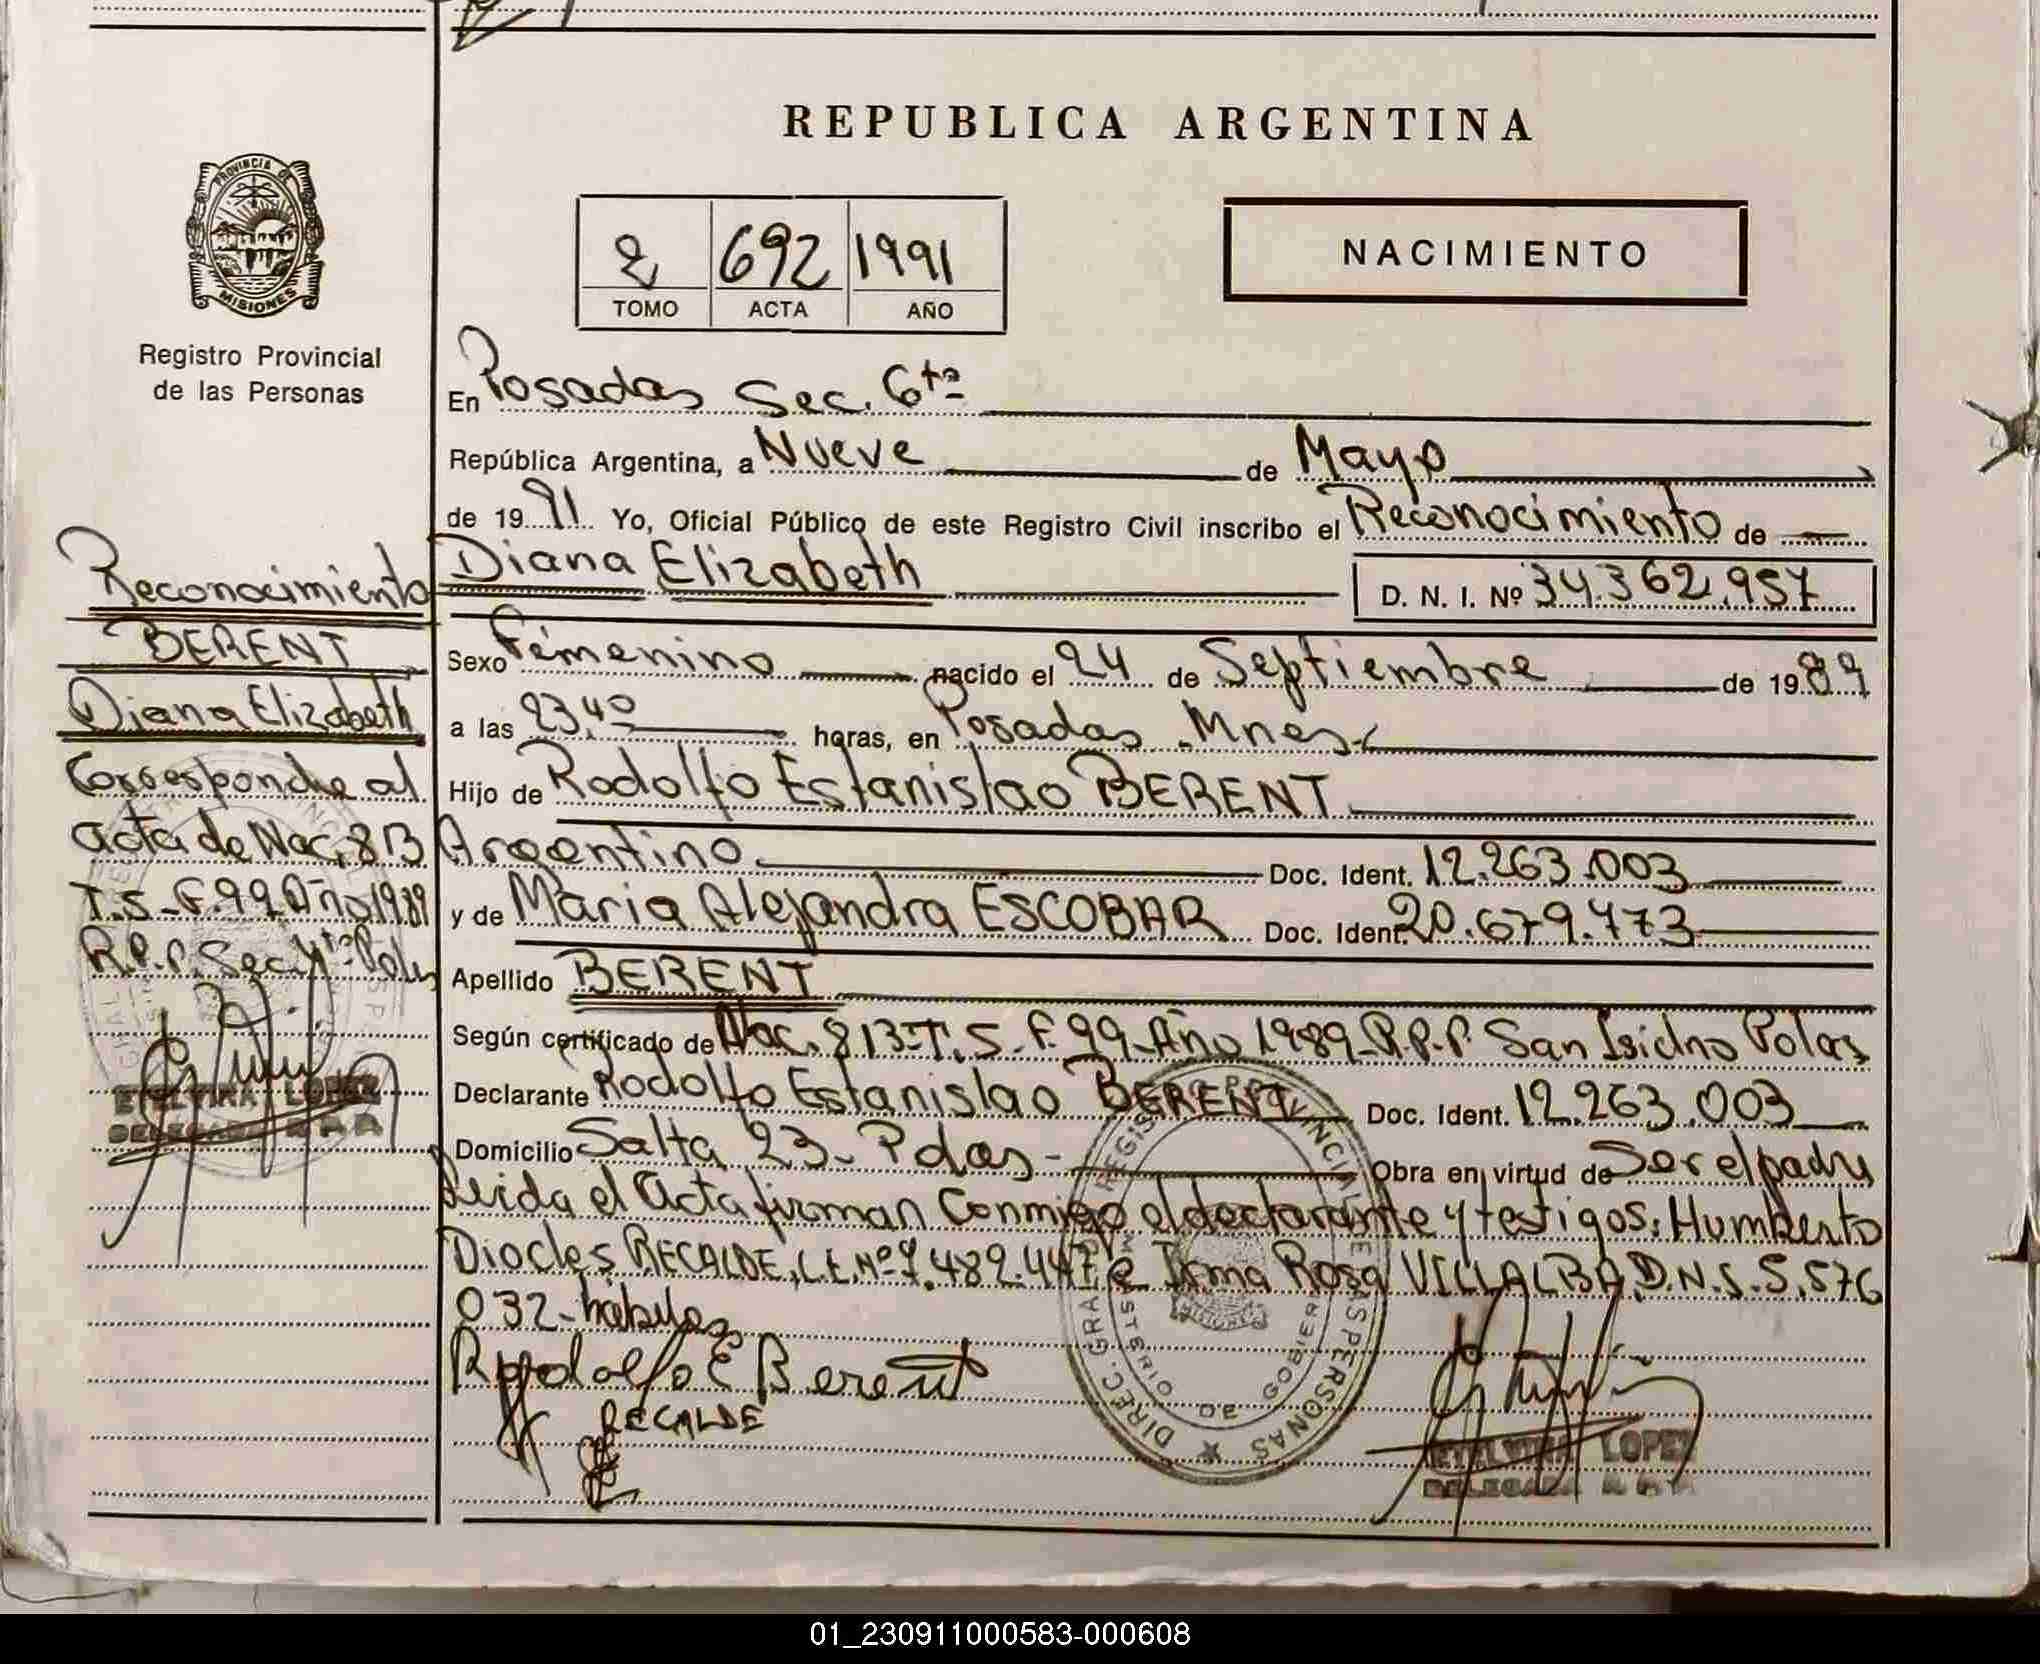 REPUBLICA ARGENTINA
PROVINCIA DE MISIONES
Registro Provincial
de las Personas
2 692 1991
TOMO ACTA AÑO
NACIMIENTO
En Posadas Sec. 6ta
República Argentina, a Nueve de Mayo
de 1991 Yo, Oficial Público de este Registro Civil inscribo el Reconocimiento de
Diana Elizabeth D. N. I. Nº 34.362.957
Sexo Femenino nacido el 24 de Septiembre de 1989
a las 23,40 horas, en Posadas Mnes.
Hijo de Rodolfo Estanislao BERENT
Argentino Doc. Ident. 12.263.003
y de Maria Alejandra ESCOBAR Doc. Ident. 20.679.773
Apellido BERENT
Según certificado de Nac. 813-T.5-F.99-Año 1989-R.P.P. San Isidro Polas
Declarante Rodolfo Estanislao BERENT Doc. Ident. 12.263.003
Domicilio Salta 23- Pdas- Obra en virtud de Ser el padre
Leida el Acta firman Conmigo el declarante y testigos: Humberto
Diocles RECALDE, L.E. Nº 7.482.447 e Irma Rosa VILLALBA, D.N.I. 5.576
032- habiles
Rodolfo E Berent
RECALDE
DIREC. GRAL REGISTRO PROVINCIAL DE LAS PERSONAS
MINISTERIO DE GOBIERNO
MISIONES
ETELVINA LOPEZ
DELEGADA
Reconocimiento
BERENT
Diana Elizabeth
Corresponde al
acta de Nac. 813
T.5-F.99 Año 1989
R.P.P. Sec. 4ta Polas
ETELVINA LOPEZ
DELEGADA
01_230911000583-000608